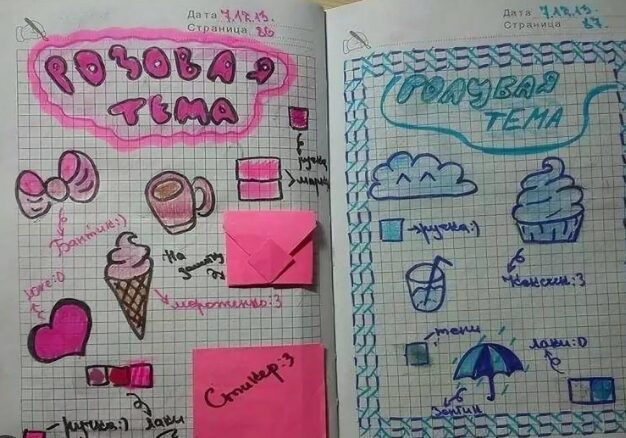 Дата 7.12.13.
Страница 86
РОЗОВАЯ
ТЕМА
ручка
Бантик:)
На
Love:D
мороженко:3
Стикер:3
ручка:)
Лаки
Дата 7.12.13.
Страница 87
ГОЛУБАЯ
ТЕМА
ручка:)
Кексик:3
тени
лаки:D
Зонтик